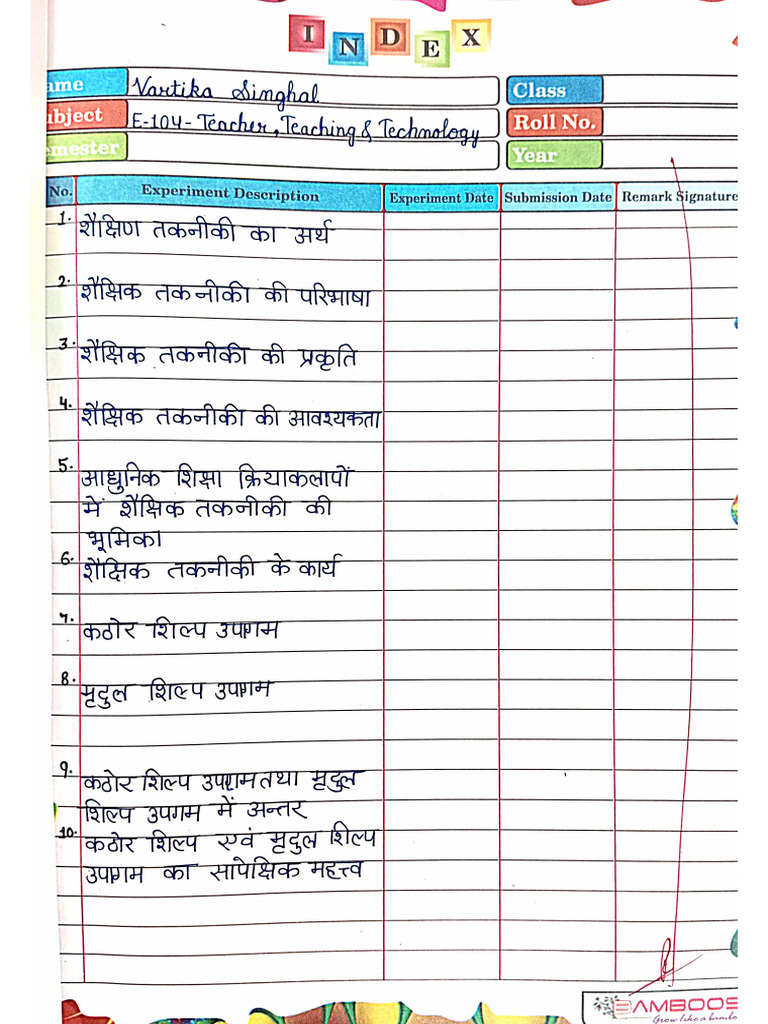 INDEX
ame Vartika Singhal Class
bject E-104- Teacher, Teaching & Technology Roll No.
mester Year
No. Experiment Description Experiment Date Submission Date Remark Signature
1. शैक्षिण तकनीकी का अर्थ
2. शैक्षिक तकनीकी की परिभाषा
3. शैक्षिक तकनीकी की प्रकृति
4. शैक्षिक तकनीकी की आवश्यकता
5. आधुनिक शिक्षा क्रियाकलापों
में शैक्षिक तकनीकी की
भूमिका
6. शैक्षिक तकनीकी के कार्य
7. कठोर शिल्प उपागम
8. मृदुल शिल्प उपागम
9. कठोर शिल्प उपागम तथा मृदुल
शिल्प उपगम में अन्तर
10. कठोर शिल्प एवं मृदुल शिल्प
उपागम का सापेक्षिक महत्त्व
BAMBOOS
Grow like a bambo